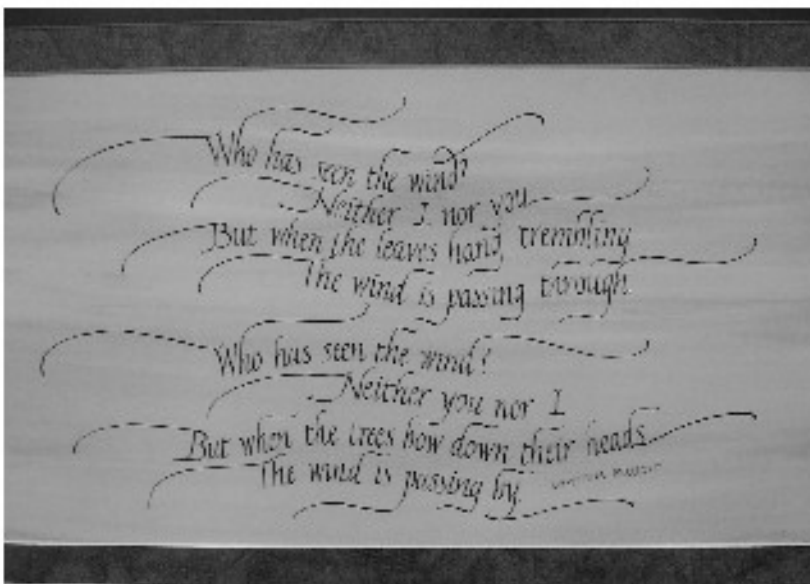 Who has seen the wind?
Neither I nor you
But when the leaves hang trembling
The wind is passing through.
Who has seen the wind?
Neither you nor I
But when the trees bow down their heads
The wind is passing by.